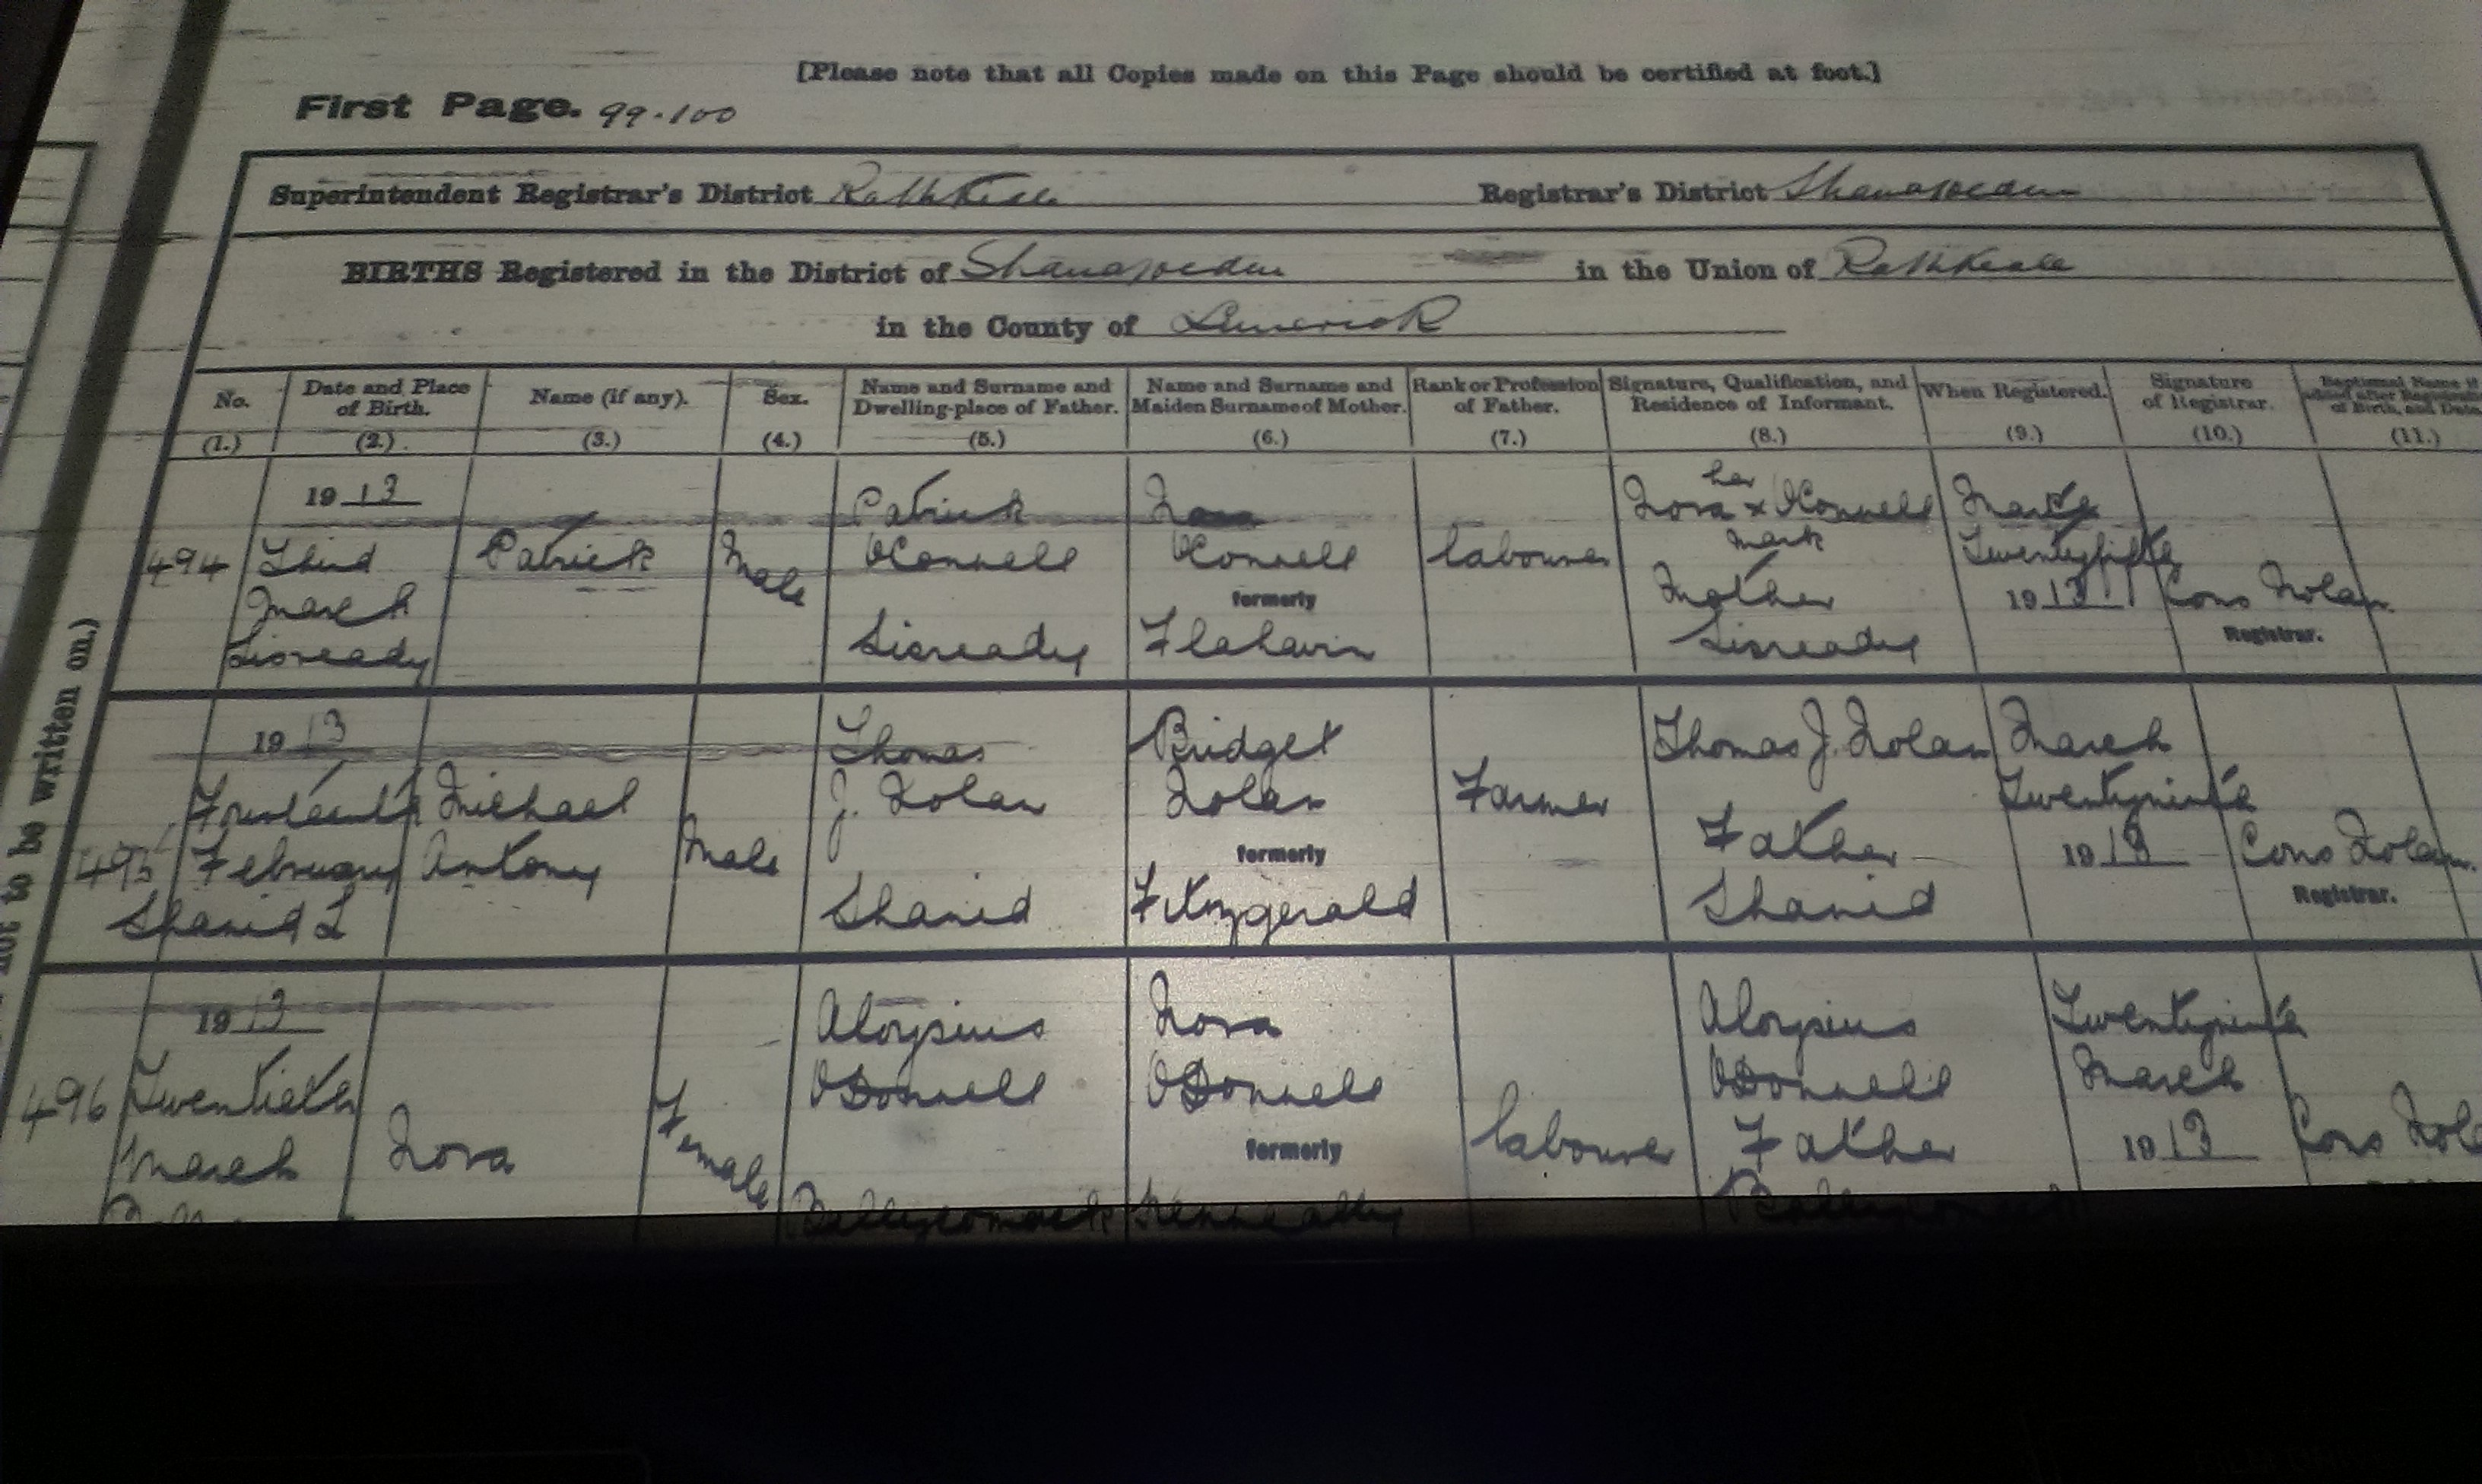 [Please note that all Copies made on this Page should be certified at foot.]
First Page. 99.100
Superintendent Registrar's District Rathkeale Registrar's District Shanagolden
BIRTHS Registered in the District of Shanagolden in the Union of Rathkeale
in the County of Limerick
No. (1.)
Date and Place
of Birth. (2.)
Name (if any). (3.)
Sex. (4.)
Name and Surname and
Dwelling-place of Father. (5.)
Name and Surname and
Maiden Surname of Mother. (6.)
Rank or Profession
of Father. (7.)
Signature, Qualification, and
Residence of Informant. (8.)
When Registered. (9.)
Signature
of Registrar. (10.)
Baptismal Name if
added after Registration
of Birth, and Date. (11.)
494
1913
Third
March
Lisready
Patrick
Male
Patrick
OConnell
Lisready
Nora
OConnell
formerly
Flahavin
labourer
her
Nora x OConnell
mark
Mother
Lisready
March
Twentyfifth
1913
Cons Nolan
Registrar.
495
1913
February
Shanid L
Michael
Antony
Male
Thomas
J. Nolan
Shanid
Bridget
Nolan
formerly
Fitzgerald
Farmer
Thomas J. Nolan
Father
Shanid
March
Twentyninth
1913
Cons Nolan
Registrar.
496
1913
Twentieth
March
Nora
Female
Aloysius
ODonnell
Nora
ODonnell
formerly
Kenneally
labourer
Aloysius
ODonnell
Father
Twentyninth
March
1913
Cons
not to be written on.)